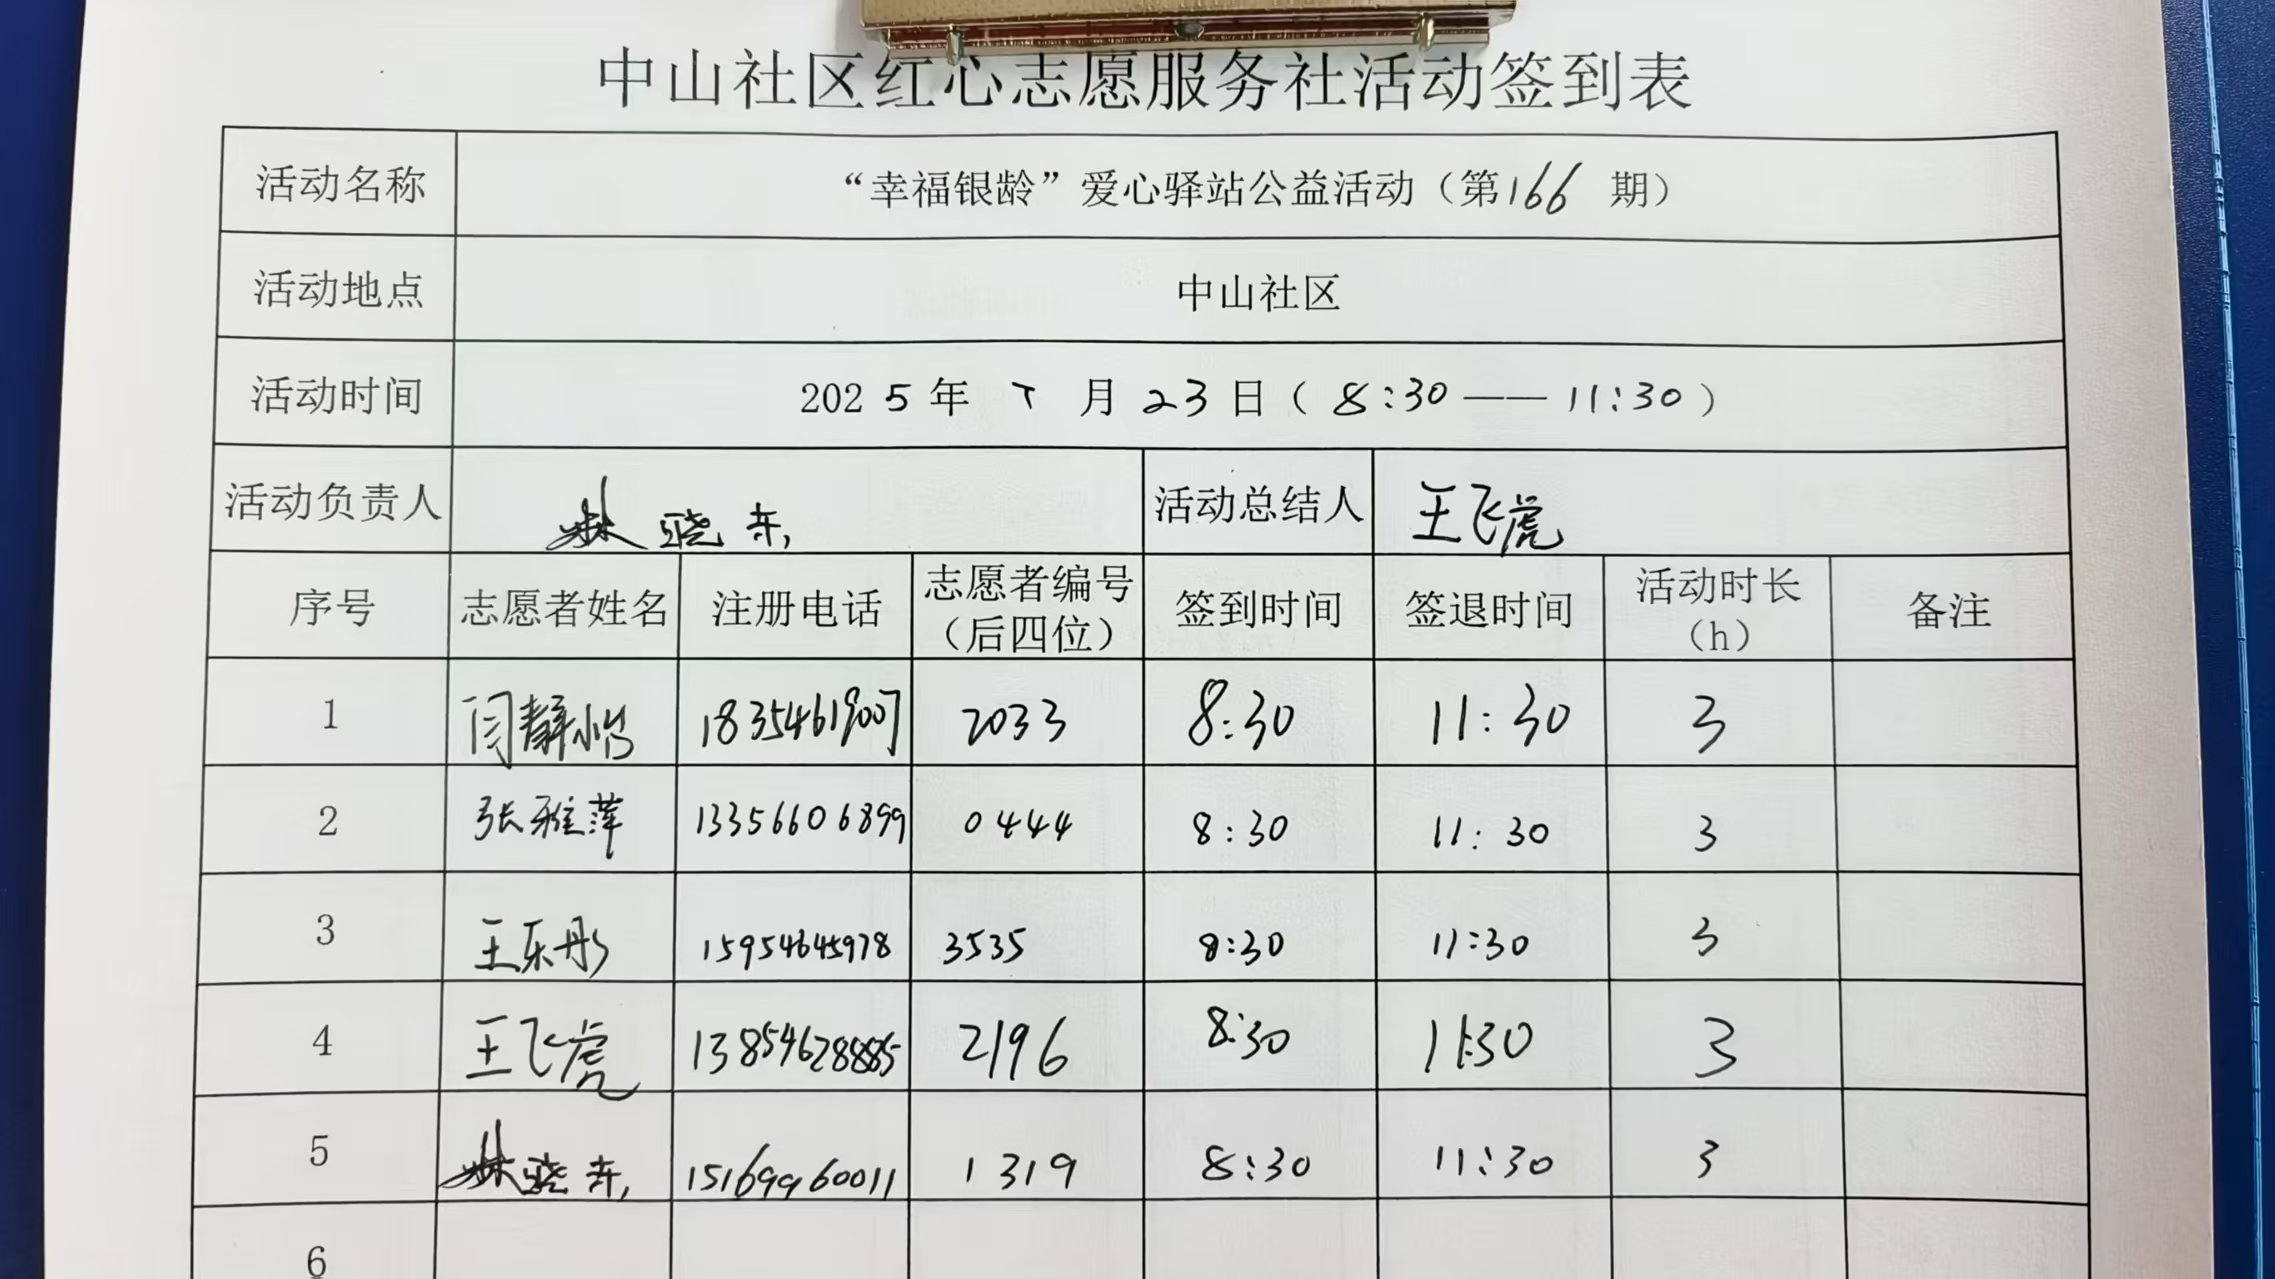 中山社区红心志愿服务社活动签到表
活动名称 “幸福银龄”爱心驿站公益活动（第166期）
活动地点 中山社区
活动时间 2025年7月23日（8:30——11:30）
活动负责人 林晓东 活动总结人 王飞虎
序号 志愿者姓名 注册电话 志愿者编号（后四位） 签到时间 签退时间 活动时长（h） 备注
1 闫静怡 18354619007 2033 8:30 11:30 3
2 张雅萍 13356606899 0444 8:30 11:30 3
3 王乐彤 15954645978 3535 8:30 11:30 3
4 王飞虎 13854628885 2196 8:30 11:30 3
5 林晓东 15169960011 1319 8:30 11:30 3
6